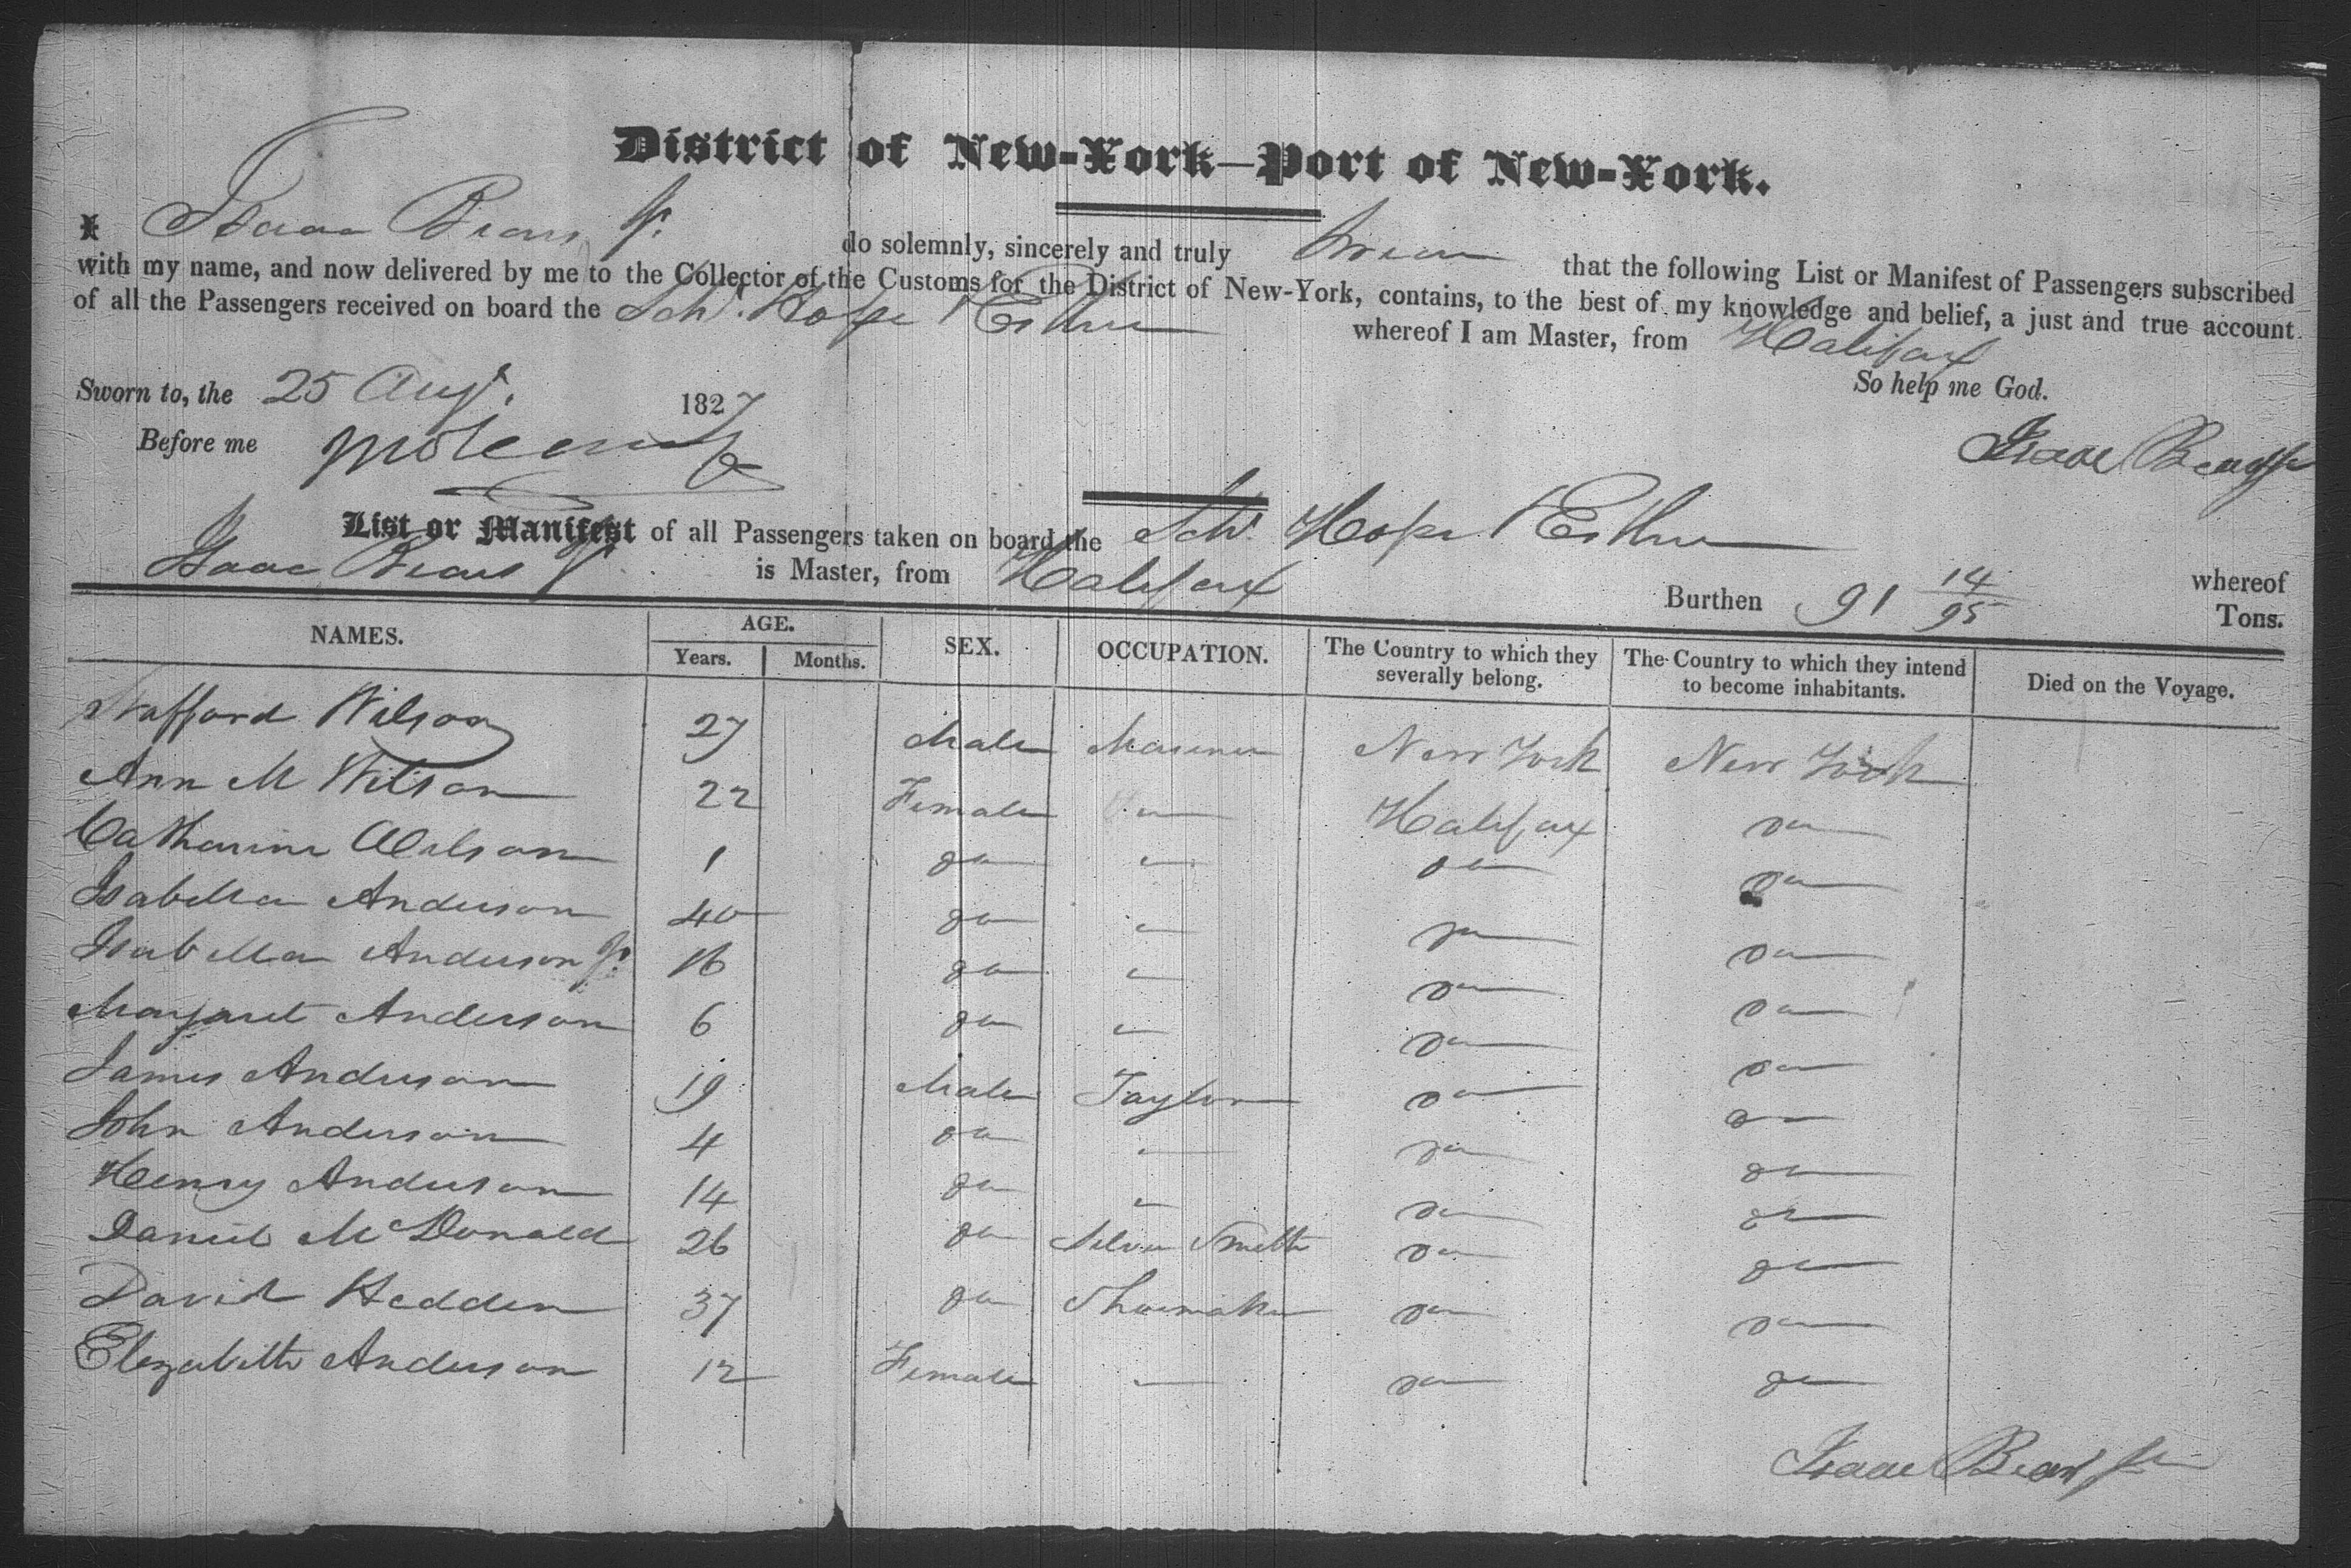 District of New-York—Port of New-York.
I Isaac Bears Jr. do solemnly, sincerely and truly swear that the following List or Manifest of Passengers subscribed
with my name, and now delivered by me to the Collector of the Customs for the District of New-York, contains, to the best of my knowledge and belief, a just and true account
of all the Passengers received on board the Schr. Hope & Esther whereof I am Master, from Halifax
So help me God.
Sworn to, the 25 Augt. 1827
Before me
Isaac Bears Jr
List or Manifest of all Passengers taken on board the Schr. Hope & Esther whereof
Isaac Bears Jr is Master, from Halifax Burthen 91 14/95 Tons.
NAMES. AGE. SEX. OCCUPATION. The Country to which they severally belong. The Country to which they intend to become inhabitants. Died on the Voyage.
Years. Months.
Strafford Wilson 27 Male Mariner New York New York
Ann M Wilson 22 Female Halifax do
Catharine Wilson 1 do do do
Isabella Anderson 40 do do do
Isabella Anderson Jr. 16 do do do
Margaret Anderson 6 do do do
James Anderson 19 Male Taylor do do
John Anderson 4 do do do
Henry Anderson 14 do do do
Daniel McDonald 26 do Silver Smith do do
David Hedden 37 do Shoemaker do do
Elizabeth Anderson 12 Female do do
Isaac Bears Jr